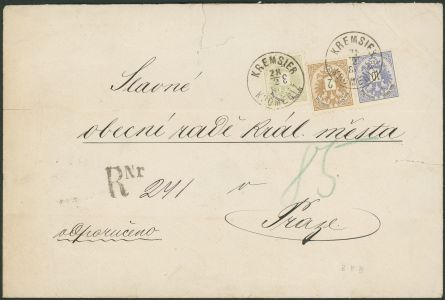 KREMSIER
KROMĚŘÍŽ
KREMSIER
3
2
10
Slavné
obecní radě král. města
R Nr 241
v
Praze
odporučeno
85